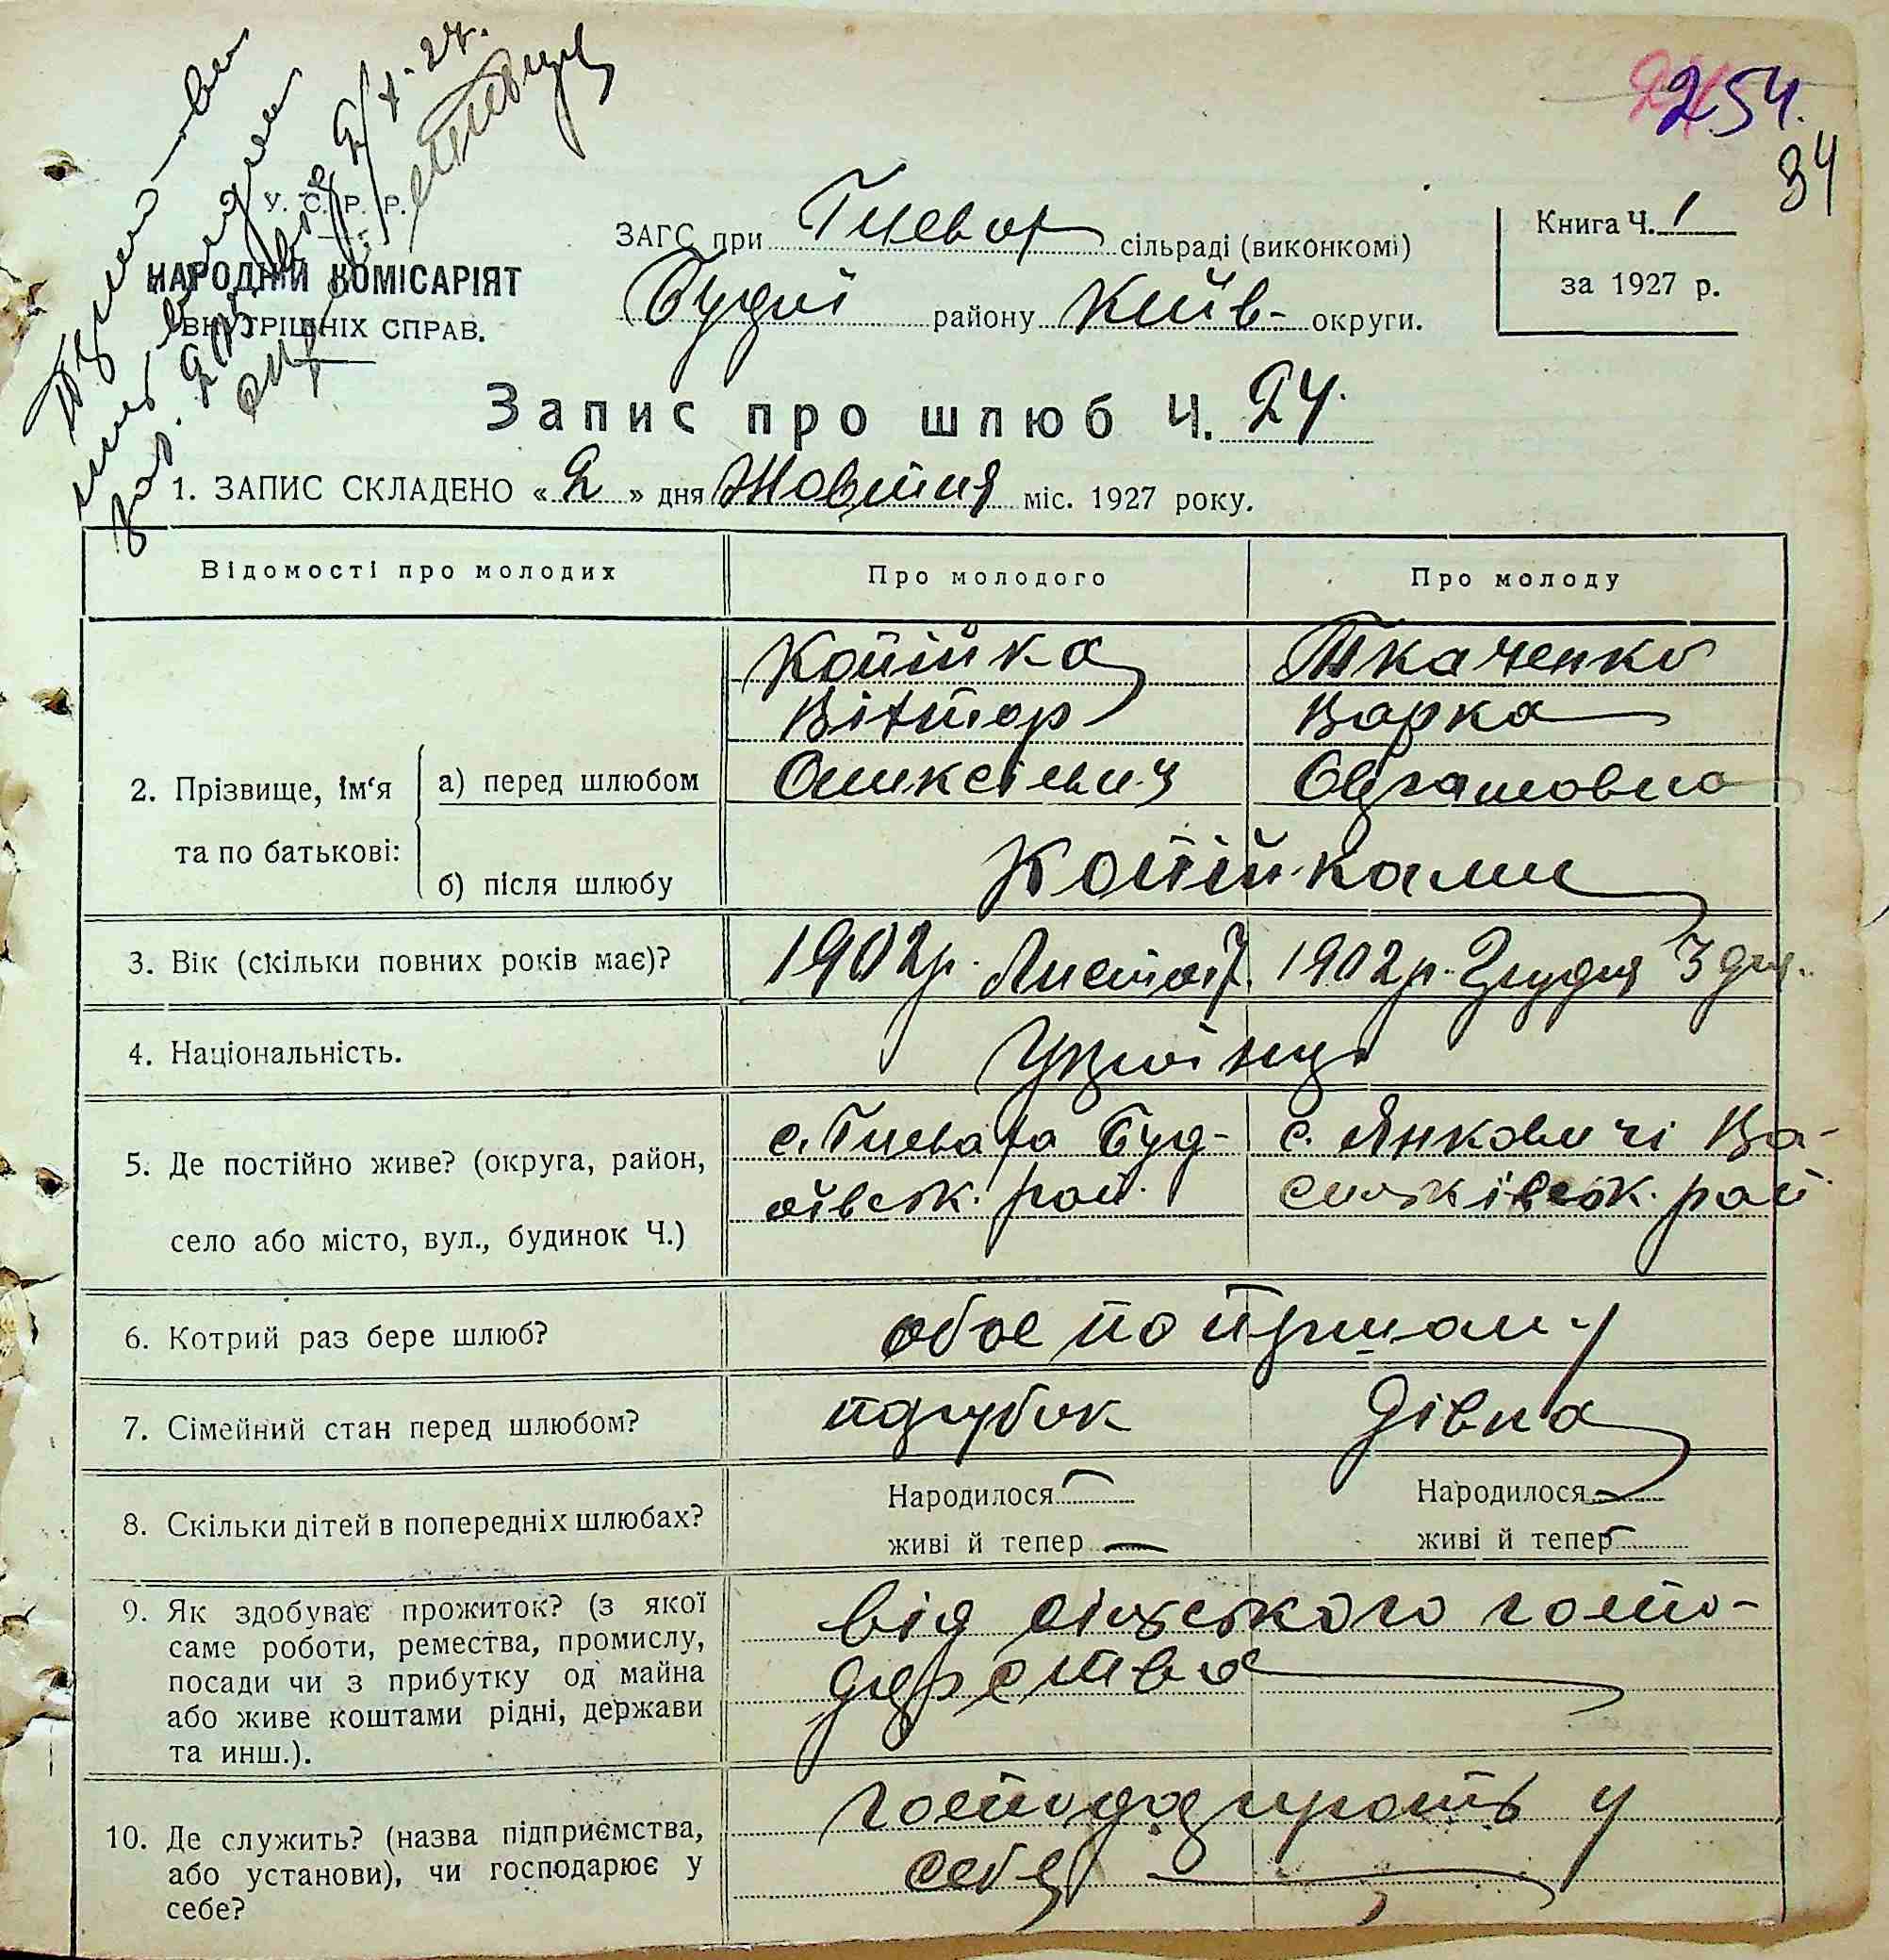 254.
34
У. С. Р. Р.
НАРОДНІЙ КОМІСАРІЯТ
ВНУТРІШНІХ СПРАВ.
ЗАГС при Гневат сільраді (виконкомі)
Будаї району Київ- округи.
Книга Ч. 1
за 1927 р.
Запис про шлюб Ч. 24.
1. ЗАПИС СКЛАДЕНО « 2 » дня Жовтня міс. 1927 року.
Відомості про молодих
Про молодого
Про молоду
2. Прізвище, ім'я та по батькові:
а) перед шлюбом
Копійка
Віктор
Оликсієвич
Ткаченко
Варка
б) після шлюбу
Копійками
3. Вік (скільки повних років має)?
1902р. Листоп.
1902р. Грудня 3 дня.
4. Національність.
Україінці
5. Де постійно живе? (округа, район,
село або місто, вул., будинок Ч.)
с. Гнева та Буд-
аївськ. рай.
с. Янковичі Ва-
сильківськ. рай
6. Котрий раз бере шлюб?
обоє по першому
7. Сімейний стан перед шлюбом?
парубок
Дівка
8. Скільки дітей в попередніх шлюбах?
Народилося —
живі й тепер —
Народилося —
живі й тепер —
9. Як здобуває прожиток? (з якої
саме роботи, ремества, промислу,
посади чи з прибутку од майна
або живе коштами рідні, держави
та инш.).
від сільського госпо-
дарства
10. Де служить? (назва підприємства,
або установи), чи господарює у
себе?
господарують у
себе